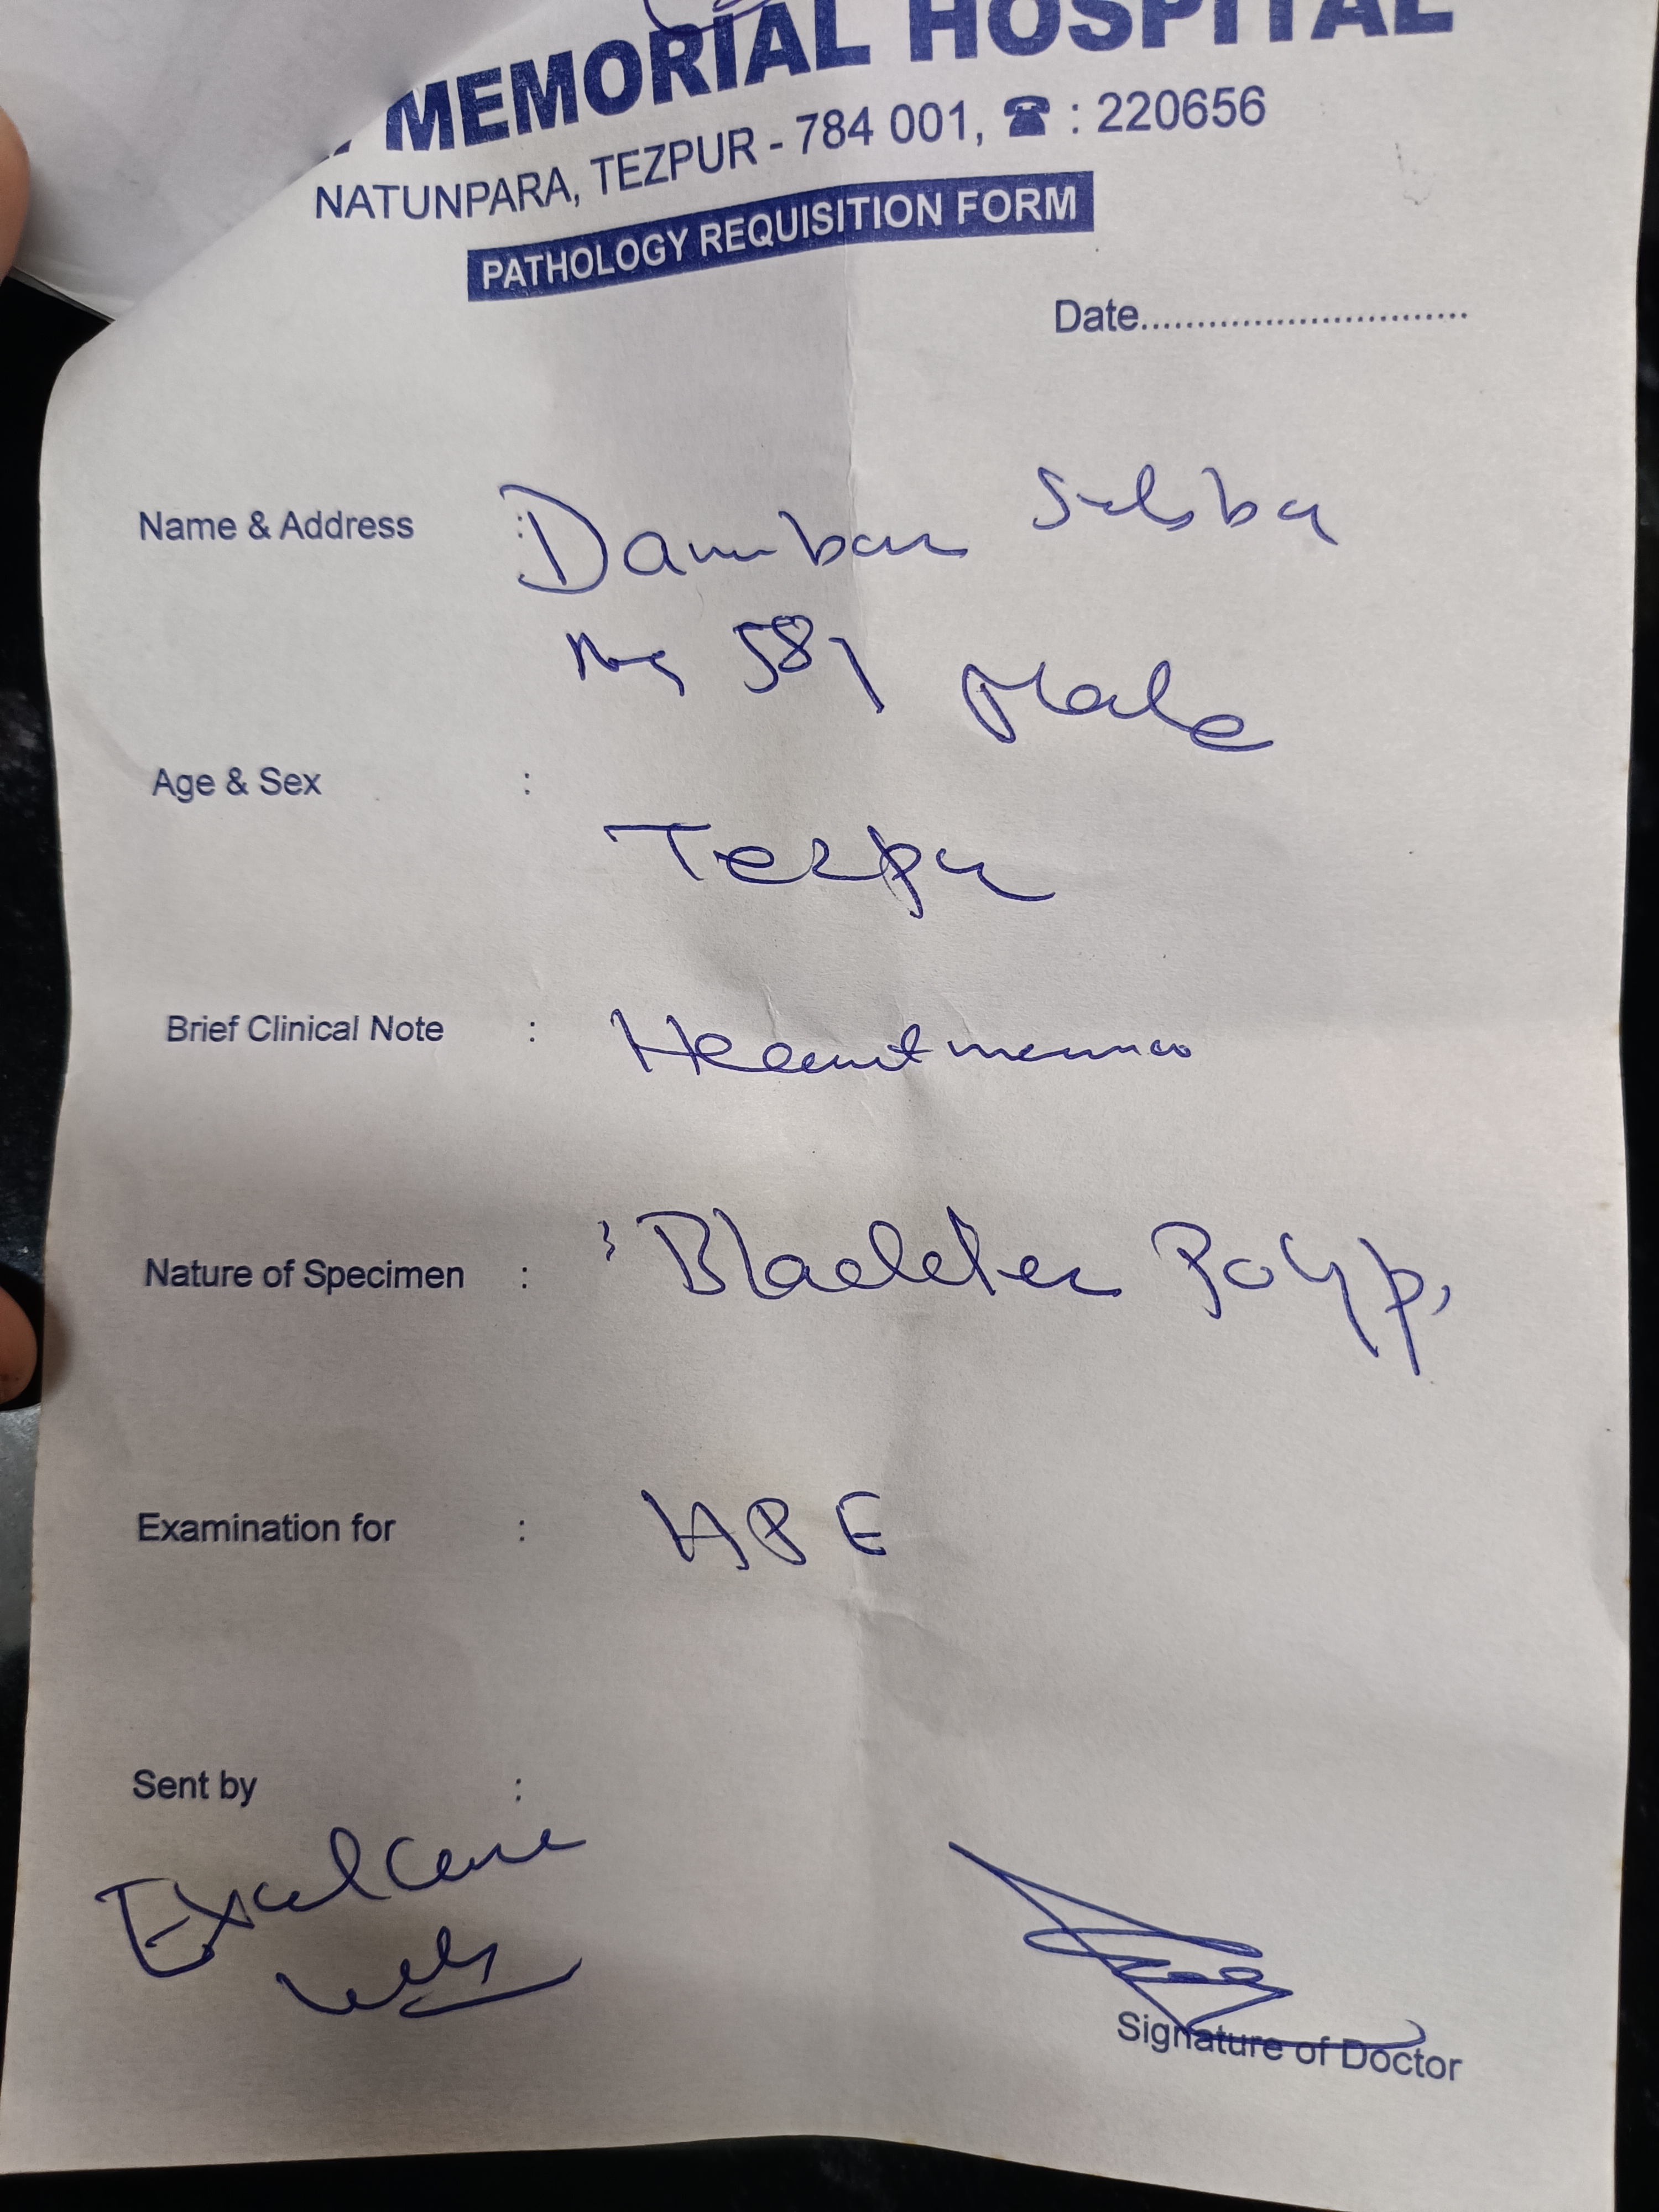 MEMORIAL HOSPITAL
NATUNPARA, TEZPUR - 784 001, ☎ : 220656
PATHOLOGY REQUISITION FORM
Date..............................
Name & Address :
58y Male
Age & Sex :
Tezpur
Brief Clinical Note :
Nature of Specimen : Bladder Polyp,
Examination for : HPE
Sent by :
Excel Care
Signature of Doctor